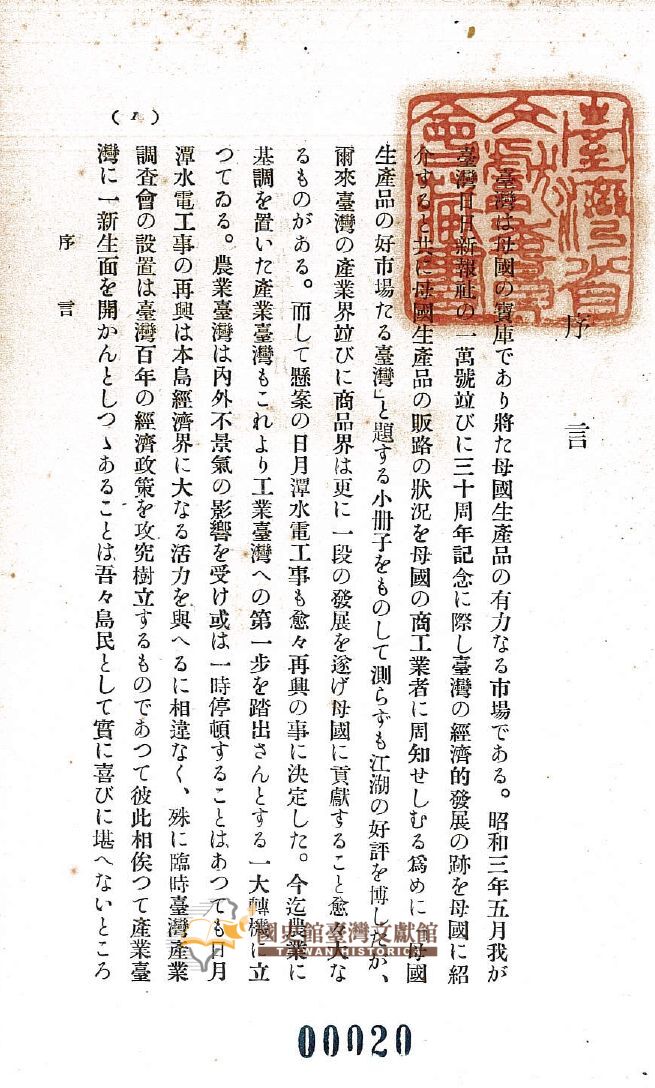 序言
臺灣は母國の寶庫であり將た母國生產品の有力なる市場である。昭和三年五月我が
臺灣日日新報社の一萬號並びに三十周年記念に際し臺灣の經濟的發展の跡を母國に紹
介すると共に母國生產品の販路の狀況を母國の商工業者に周知せしむる爲めに「母國
生產品の好市場たる臺灣」と題する小册子をものして測らずも江湖の好評を博したが、
爾來臺灣の產業界並びに商品界は更に一段の發展を遂げ母國に貢獻すること愈々大な
るものがある。而して懸案の日月潭水電工事も愈々再興の事に決定した。今迄農業に
基調を置いた產業臺灣もこれより工業臺灣への第一步を踏出さんとする一大轉機に立
つてゐる。農業臺灣は內外不景氣の影響を受け或は一時停頓することはあつても日月
潭水電工事の再興は本島經濟界に大なる活力を與へるに相違なく、殊に臨時臺灣產業
調査會の設置は臺灣百年の經濟政策を攻究樹立するものであつて彼此相俟つて產業臺
灣に一新生面を開かんとしつゝあることは吾々島民として實に喜びに堪へないところ
序言
(1)
國史館臺灣文獻館
TAIWAN HISTORICA
00020